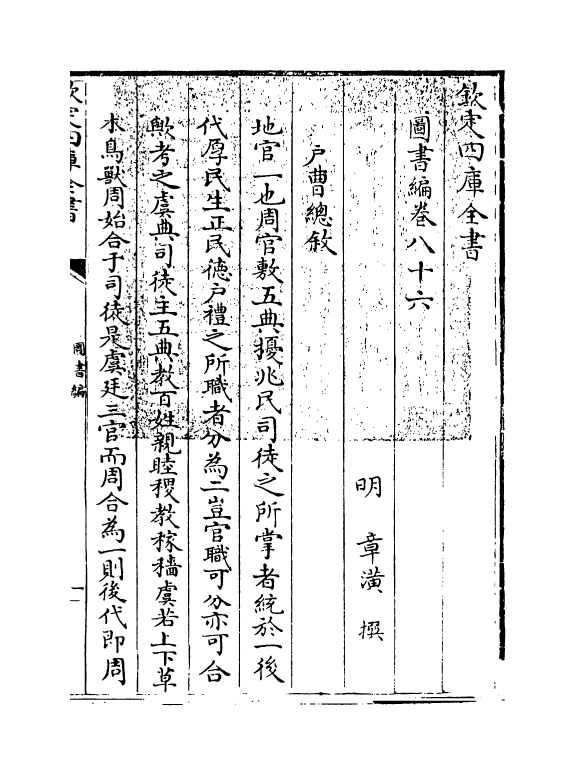 欽定四庫全書
圖書編卷八十六
明 章潢 撰
戶曹總敘
地官一也周官敷五典擾兆民司徒之所掌者統於一後
代厚民生正民德戶禮之所職者分為二豈官職可分亦可合
歟考之虞典司徒主五典教百姓親睦稷教稼穡虞若上下草
木鳥獸周始合于司徒是虞廷三官而周合為一則後代即周
欽定四庫全書
圖書編
一